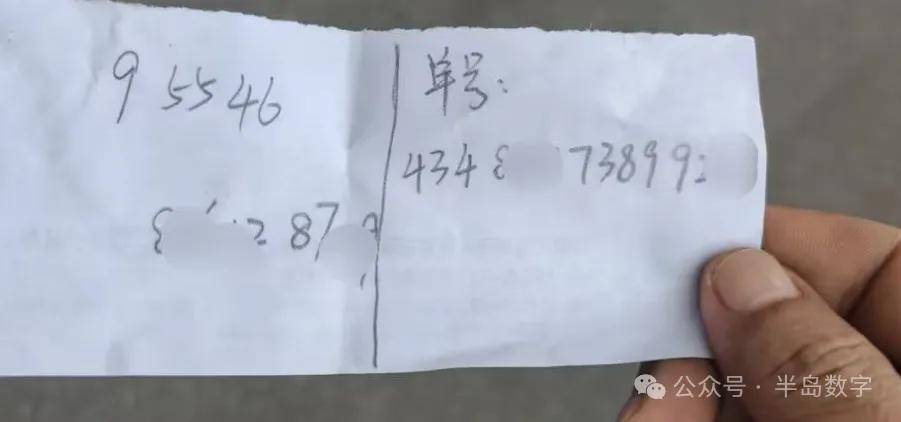 95546
287
单号:
434 73899
公众号·半岛数字